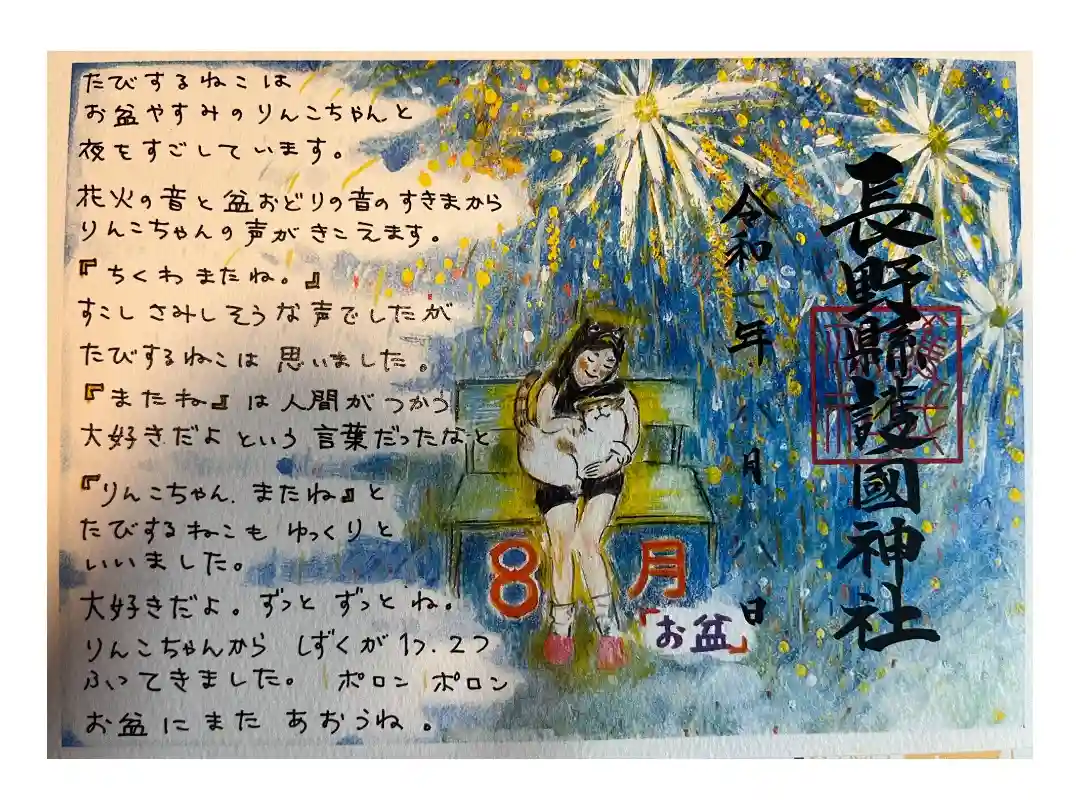 たびするねこは
お盆やすみのりんこちゃんと
夜をすごしています。
花火の音と盆おどりの音のすきまから
りんこちゃんの声がきこえます。
『ちくわ またね。』
すこし さみしそうな声でしたが
たびするねこは 思いました。
『またね』は人間が つかう
大好きだよ という 言葉だったなと
『りんこちゃん.またね』と
たびするねこも ゆっくりと
いいました。
大好きだよ。ずっと ずっと ね。
りんこちゃんから しずくが 1つ.2つ
ふってきました。 ポロン ポロン
お盆にまた あおうね。
8月
「お盆」
長野縣護國神社
令和七年 八月八日